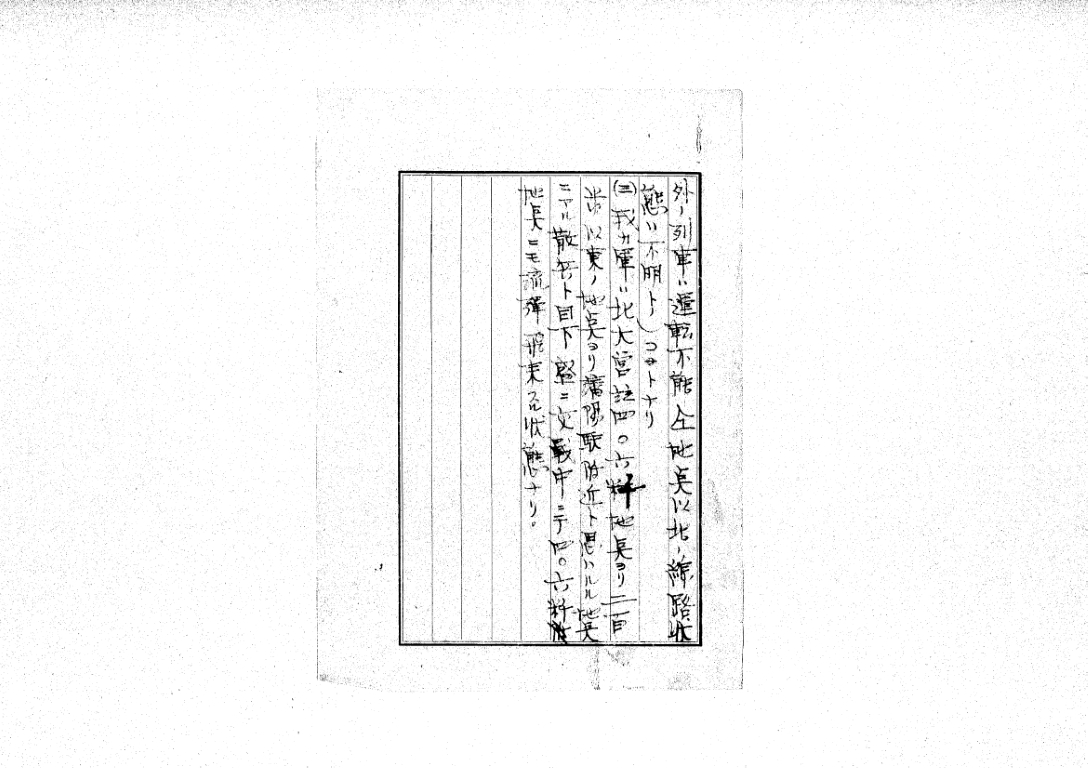 外ノ列車ハ運転不能全地点以北ノ線路状
態ハ不明トノコトナリ
(三)我カ軍ハ北大営註四〇六粁地点ヨリ二百
米以東ノ地点ヨリ瀋陽駅附近ト思ハルル地点
ニアル散兵ト目下盛ニ交戦中ニテ四〇六粁附
地点ニモ流弾飛来スル状態ナリ。